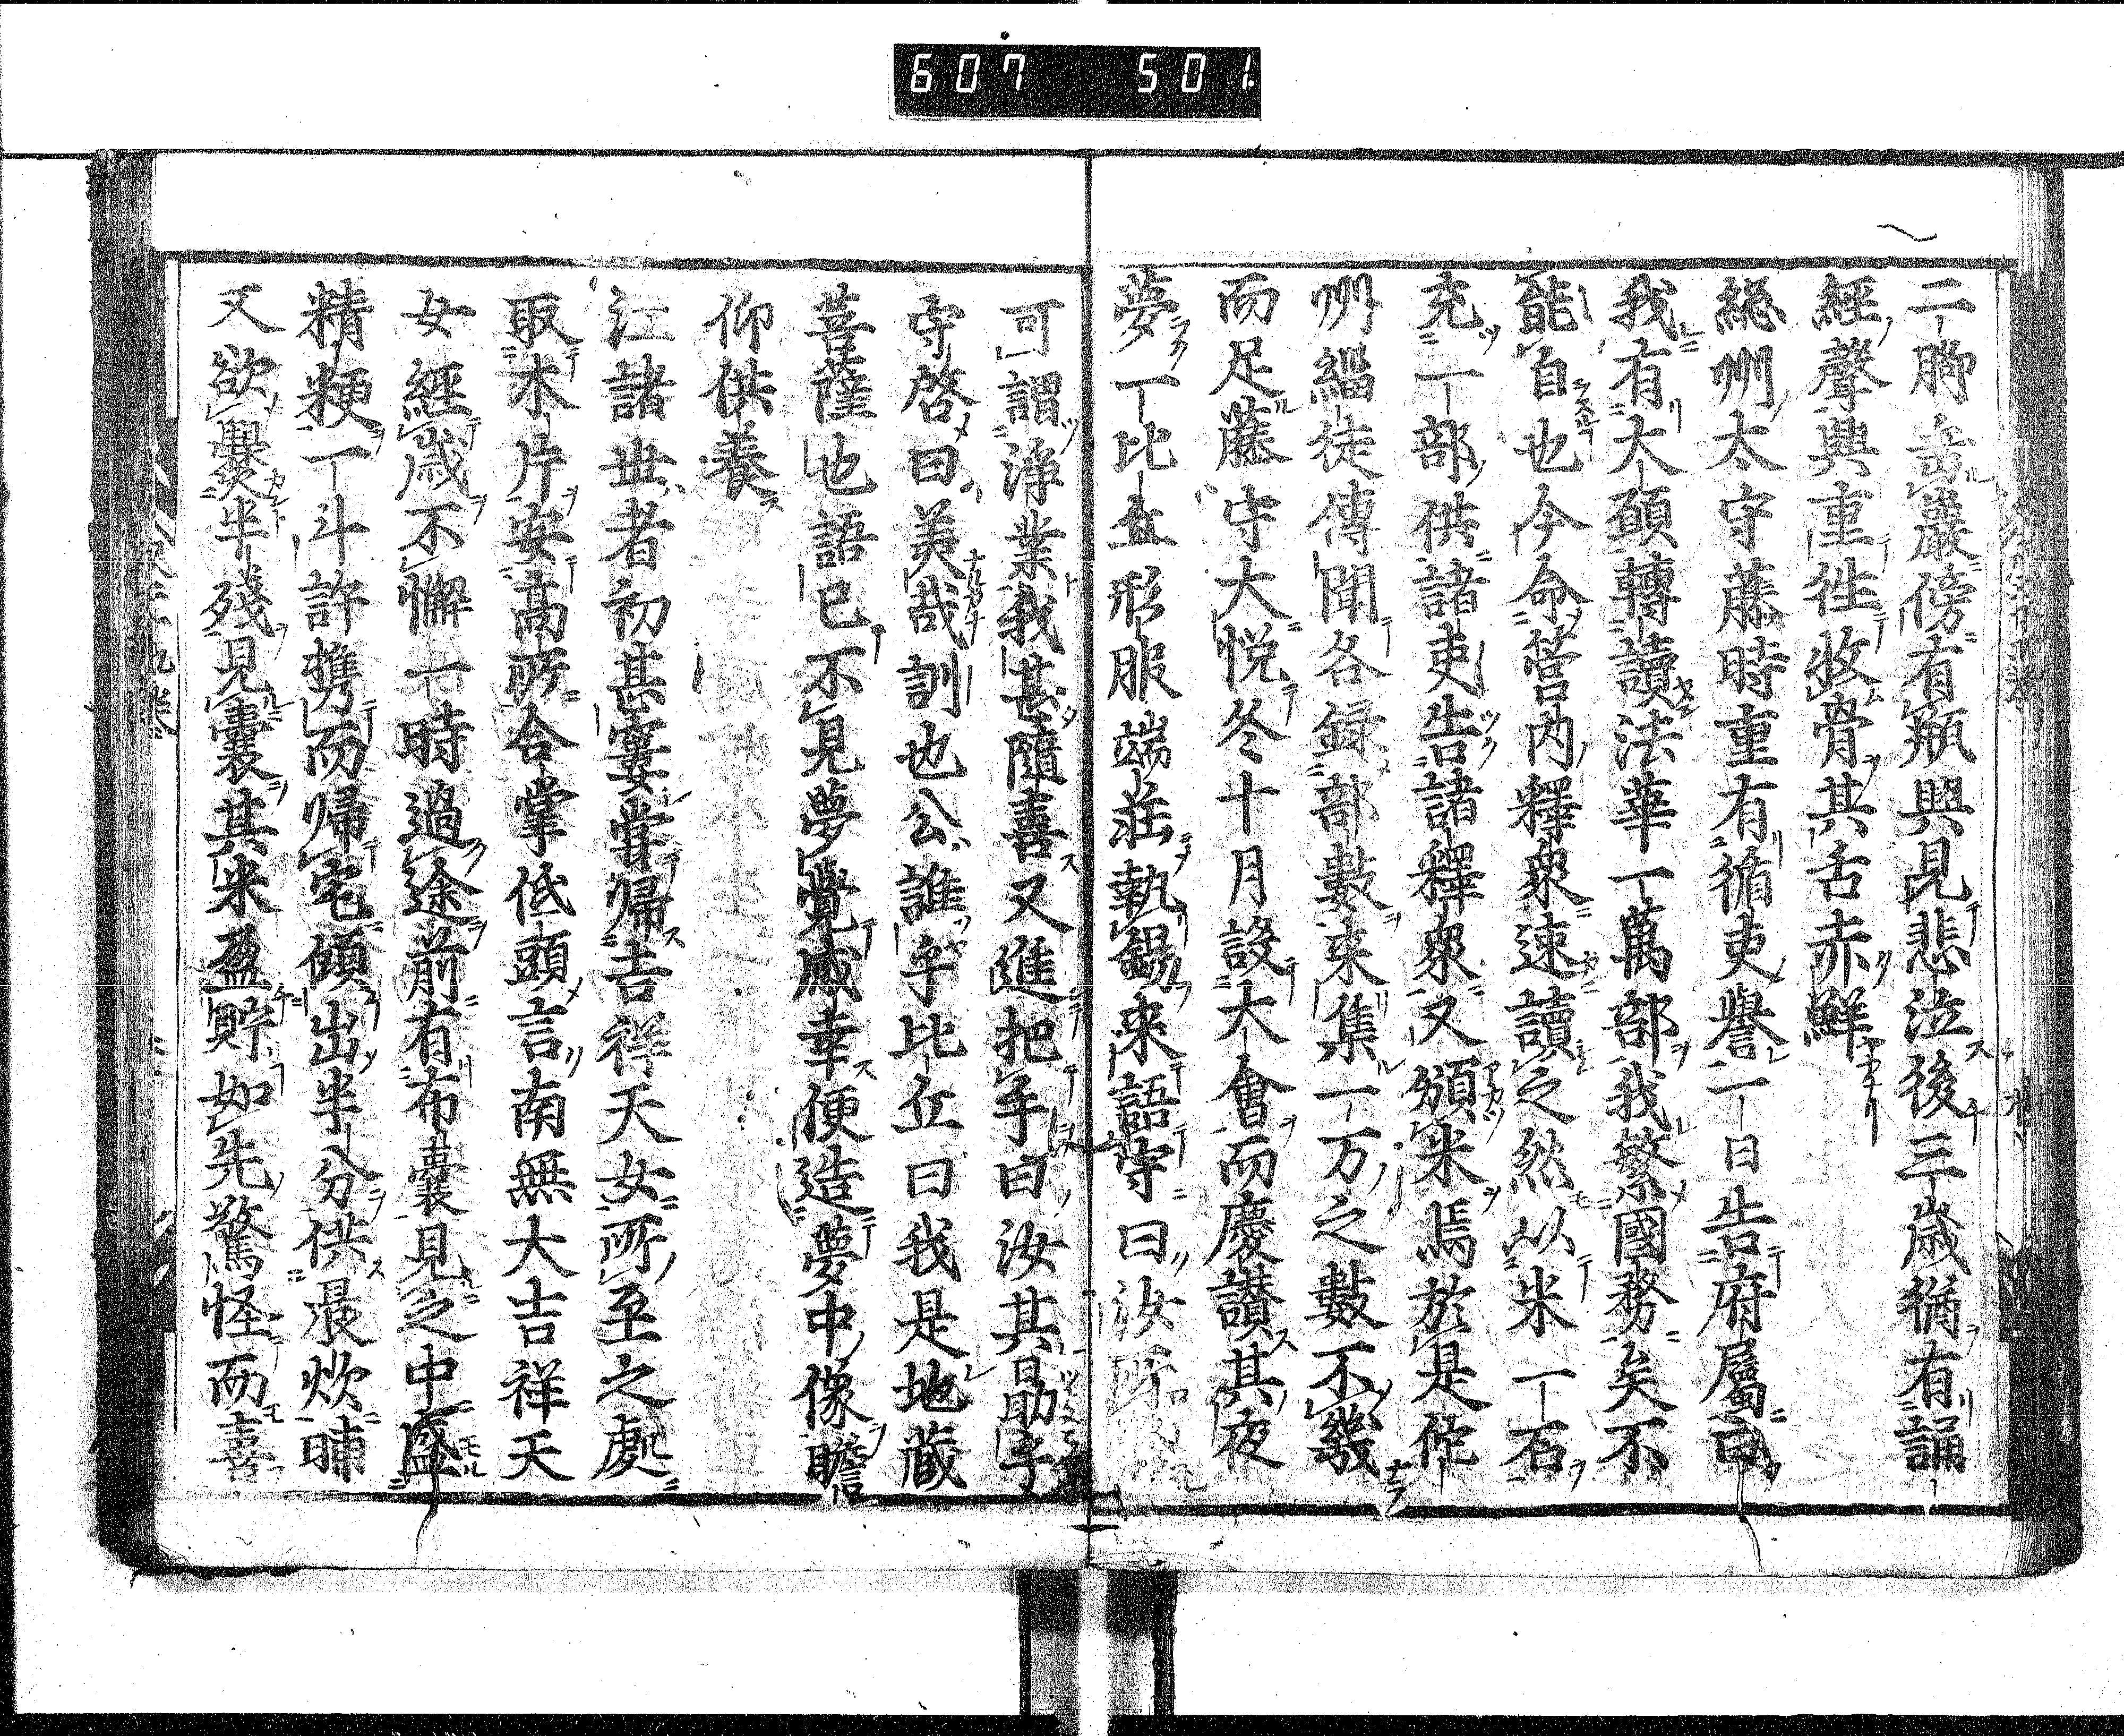 607 501
二脚岳巖傍有瓶興見悲泣後三歲猶有誦
經聲興重徃收骨其舌赤鮮
総州太守藤時重有循吏譽一日告府屬曰
我有大願轉讀法華一萬部我繁國務矣不
能自也今命管内釋衆速讀之然以米一石
充一部供諸吏告諸釋衆又頒米焉於是佗
州緇徒傳聞各録部數来集一万之數不幾
而足藤守大悦冬十月設大會而慶讃其夜
夢一比丘形服端莊執錫来語守曰汝所
可謂淨業我甚隨喜又進把手曰汝其勗乎
守啓曰美哉訓也公誰乎比丘曰我是地蔵
菩薩也語已不見夢覺感幸便造夢中像瞻
仰供養
江諸世者初甚窶嘗帰吉祥天女所至之處
取木片安高所合掌低頭言南無大吉祥天
女經歳不懈一時過途前有布囊見之中盛
精粳一斗許携而帰宅傾出半分供晨炊晡
又欲爨半殘見囊其米盈貯如先驚怪而喜